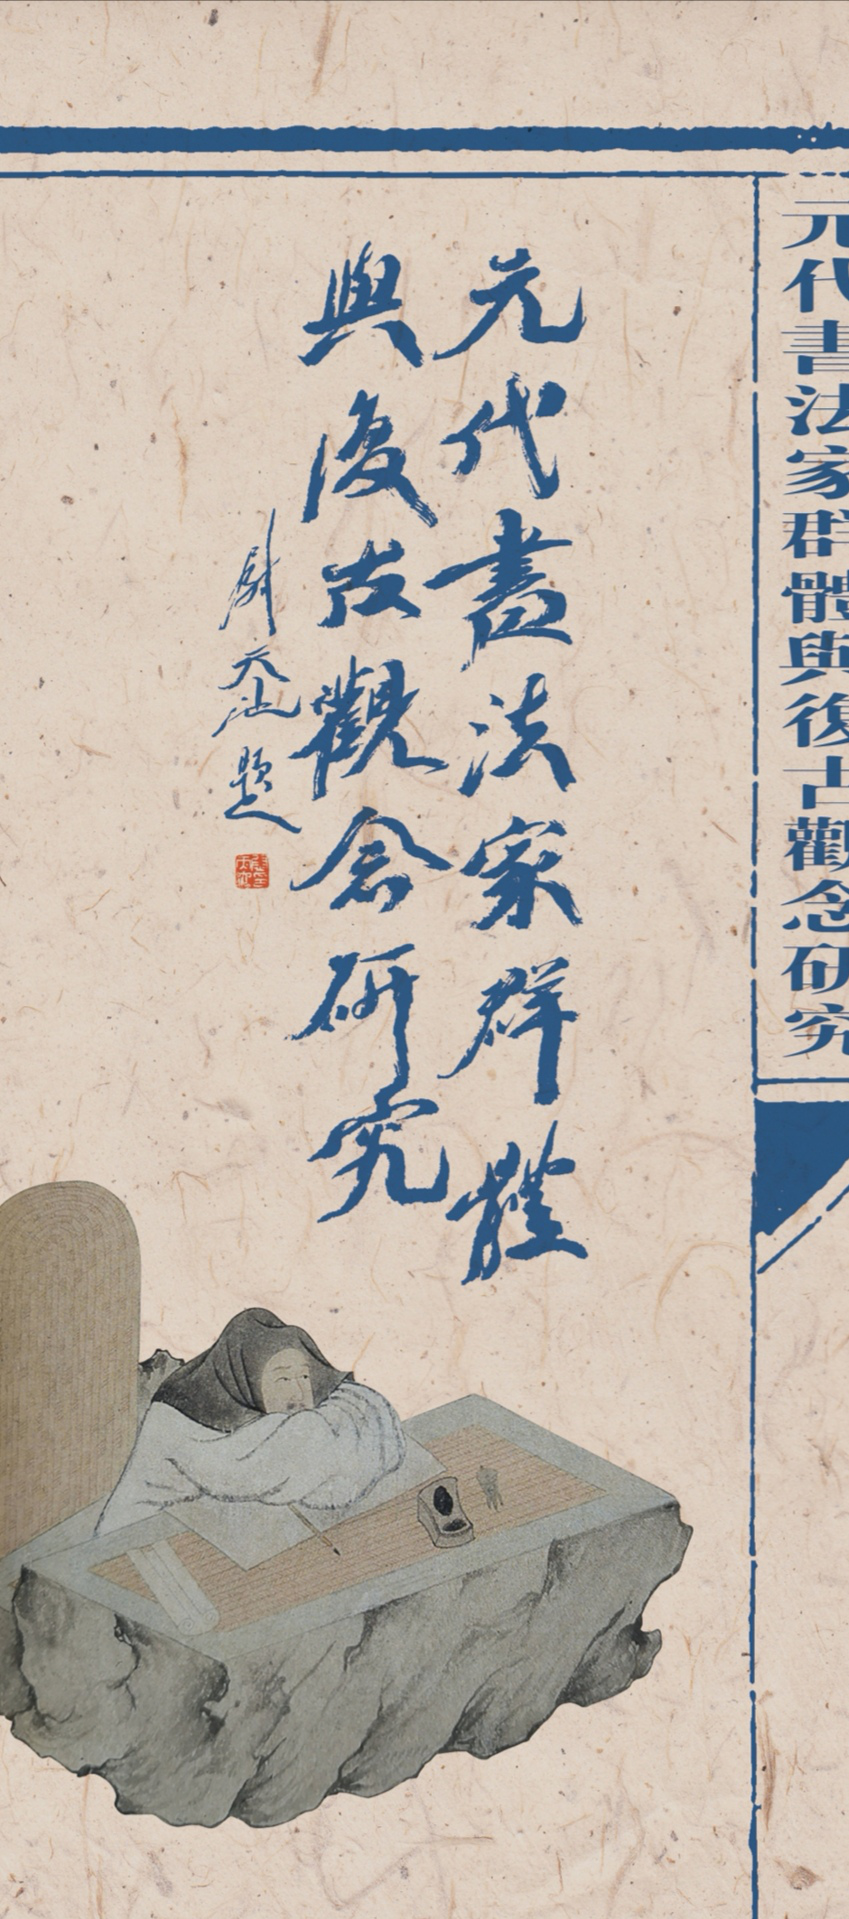 元代書法家群體與復古觀念研究
元代書法家群體
與復古觀念研究
尉天池題